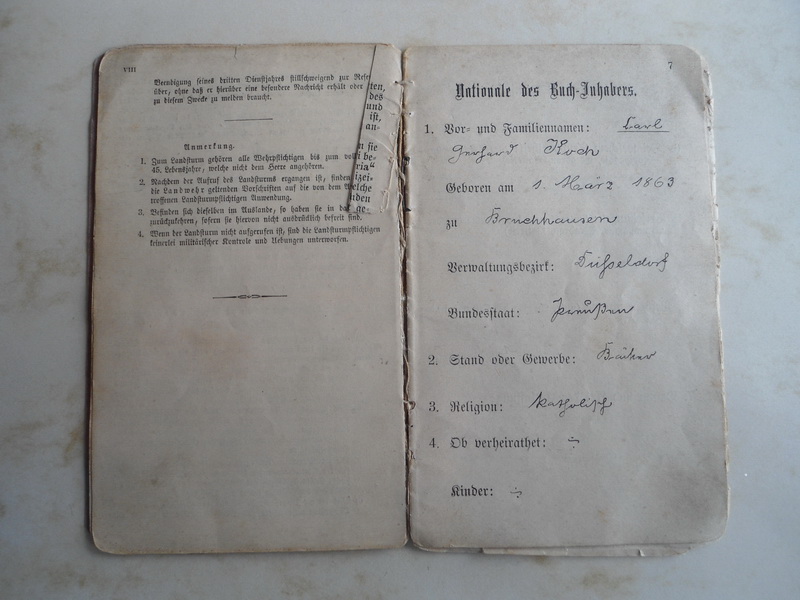 VIII
Beendigung seines dritten Dienstjahres stillschweigend zur Rese
über, ohne daß er hierüber eine besondere Nachricht erhält oder
zu diesem Zwecke zu melden braucht.
ten,
des
und
ist,
an-
Anmerkung.
1. Zum Landsturm gehören alle Wehrpflichtigen bis zum vol
45. Lebensjahr, welche nicht dem Heere angehören.
2. Nachdem der Aufruf des Landsturms ergangen ist, finden
die Landwehr geltenden Vorschriften auf die von dem A
troffenen Landsturmpflichtigen Anwendung.
3. Befinden sich dieselben im Auslande, so haben sie in das
zurückzukehren, sofern sie hiervon nicht ausdrücklich befreit sind.
4. Wenn der Landsturm nicht aufgerufen ist, sind die Landsturmpflichtigen
keinerlei militärischer Kontrole und Uebungen unterworfen.
n sie
be-
ria"
zei-
elche
nden
ge-
7
Nationale des Buch-Inhabers.
1. Vor- und Familiennamen: Carl
Gerhard Koch
Geboren am 1. März 1863
zu Bruchhausen
Verwaltungsbezirk: Düsseldorf
Bundesstaat: Preußen
2. Stand oder Gewerbe: Bäcker
3. Religion: katholisch
4. Ob verheirathet: ÷
Kinder: ÷